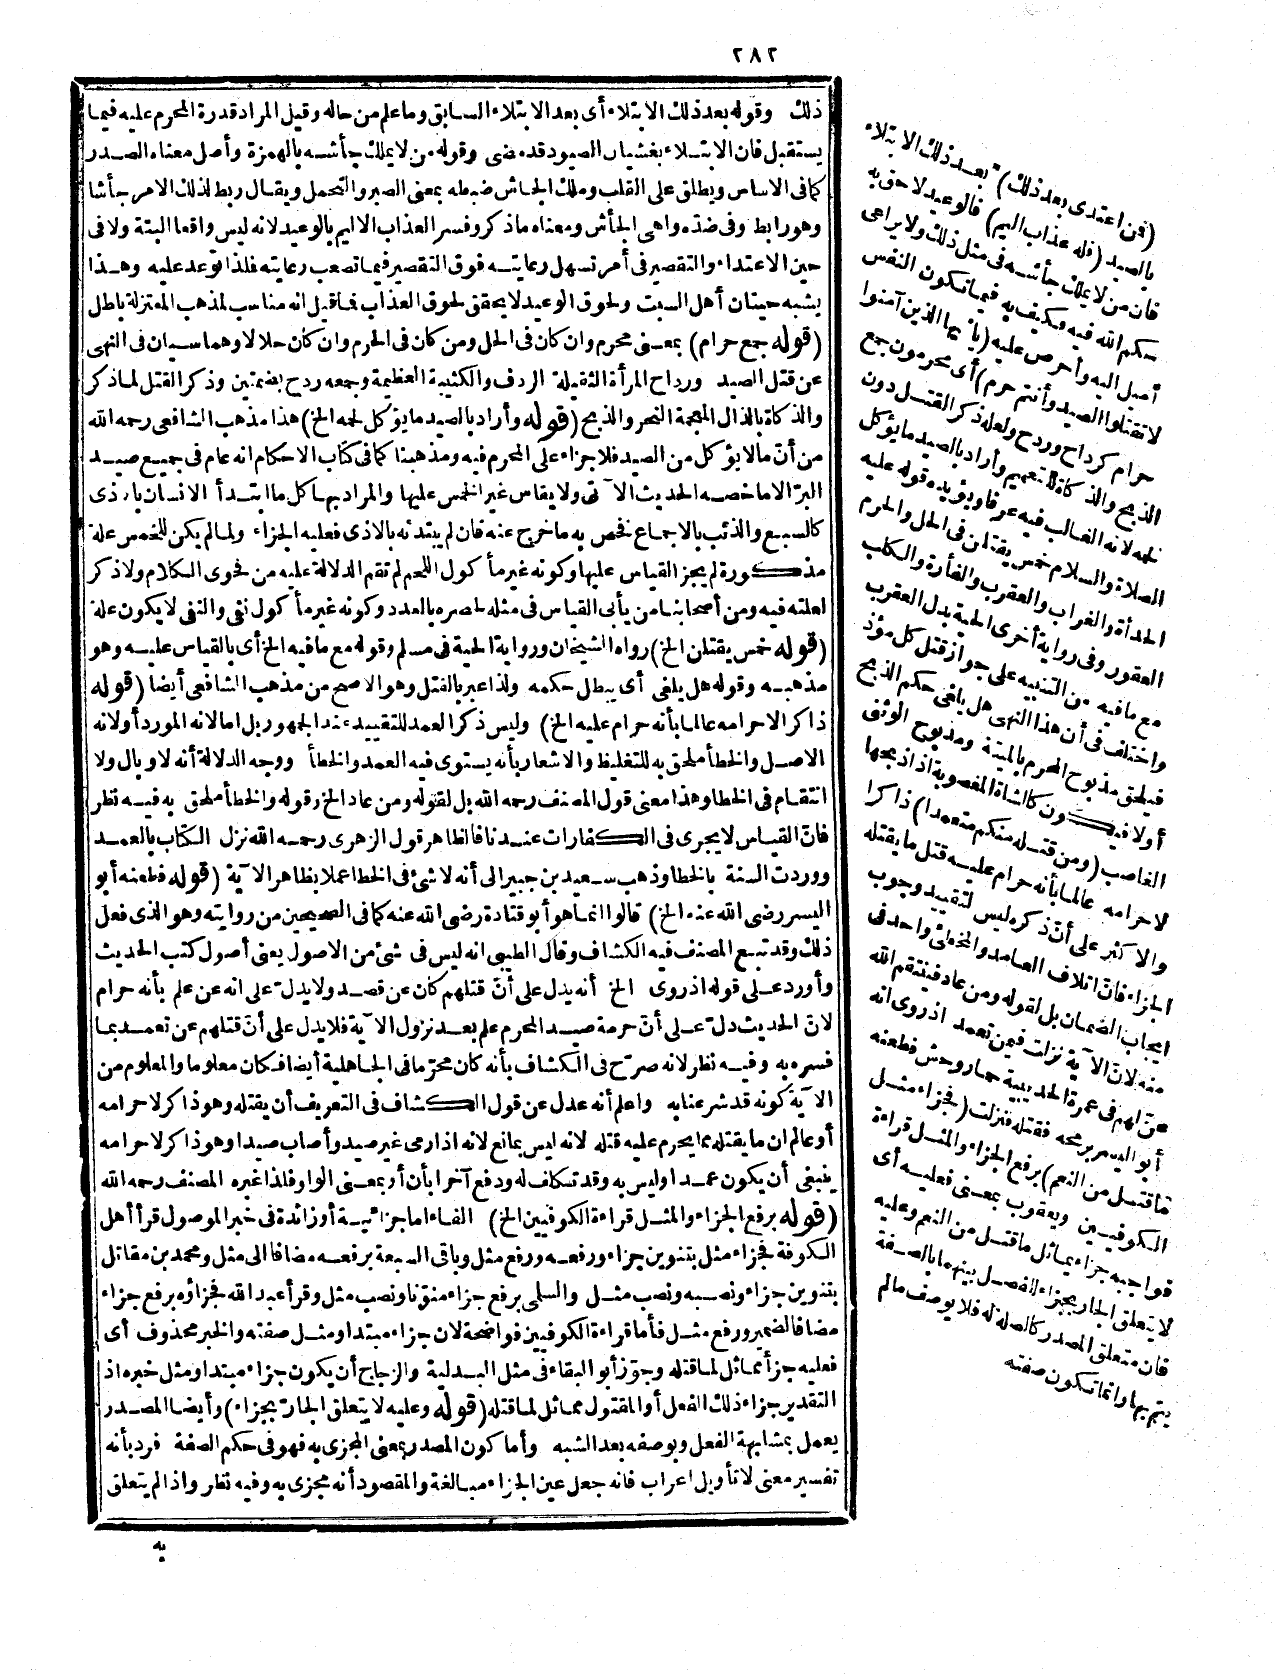 ٢٨٢
ذلك وقوله بعد ذلك الابتلاء أى بعد الابتلاء السابق وما علم من حاله وقيل المراد قدرة المحرم عليه فيما
يستقبل فان الابتلاء بغشيان الصيود قد مضى وقوله من لا يملك جأشه بالهمزة وأصل معناه الصدر
كما فى الاساس ويطلق على القلب وملك الجاش ضبطه بمعنى الصبر والتحمل ويقال ربط لذلك الامر جأشا
وهو رابط وفى ضده واهى الجأش ومعناه ماذكر وفسر العذاب الاليم بالوعيد لانه ليس واقعا البتة ولا فى
حين الاعتداء والتقصير فى أمر تسهل رعايته فوق التقصير فيما تصعب رعايته فلذا توعد عليه وهذا
يشبه حيتان أهل السبت ولحوق الوعيد لا يحقق لحوق العذاب فما قيل انه مناسب لمذهب المعتزلة باطل
(قوله جمع حرام) بمعنى محرم وان كان فى الحل ومن كان فى الحرم وان كان حلالا وهما سيان فى النهى
عن قتل الصيد ورداح المرأة الثقيلة الردف والكتيبة العظيمة وجمعه ردح بضمتين وذكر القتل لماذكر
والذكاة بالذال المعجمة النحر والذبح (قوله وأراد بالصيد ما يؤكل لحمه الخ) هذا مذهب الشافعى رحمه الله
من أنّ ما لا يؤكل من الصيد فلا جزاء على المحرم فيه ومذهبنا كما فى كتاب الاحكام انه عام فى جميع صيد
البرّ الا ما خصه الحديث الآتى ولا يقاس غير الخمس عليها والمراد بها كل ما ابتدأ الانسان بالاذى
كالسبع والذئب بالاجماع نخص به ما خرج عنه فان لم يبتدئه بالاذى فعليه الجزاء ولما لم يكن للخمس علة
مذكورة لم يجز القياس عليها وكونه غير مأكول اللحم لم تقم الدلالة عليه من فحوى الكلام ولا ذكر
لعلته فيه ومن أصحابنا من يأبى القياس فى مثله لحصره بالعدد وكونه غير مأكول نفى والنفى لا يكون علة
(قوله خمس يقتلن الخ) رواه الشيخان ورواية الحية فى مسلم وقوله مع ما فيه الخ أى بالقياس عليه وهو
مذهبه وقوله هل يلغى أى يبطل حكمه ولذا عبر بالقتل وهو الاصح من مذهب الشافعى أيضا (قوله
ذاكرا لاحرامه عالما بأنه حرام عليه الخ) وليس ذكر العمد للتقييد عند الجمهور بل امالانه المورد أولانه
الاصل والخطأ ملحق به للتغليظ والاشعار بأنه يستوى فيه العمد والخطأ ووجه الدلالة أنه لا وبال ولا
انتقام فى الخطا وهذا معنى قول المصنف رحمه الله بل لقوله ومن عاد الخ وقوله والخطأ ملحق به فيه نظر
فانّ القياس لا يجرى فى الكفارات عندنا فالظاهر قول الزهرى رحمه الله نزل الكتاب بالعمد
ووردت السنة بالخطا وذهب سعيد بن جبير الى أنه لا شئ فى الخطا عملا بظاهر الآية (قوله فطعنه أبو
اليسر رضى الله عنه الخ) قالوا انما هو أبو قتادة رضى الله عنه كما فى الصحيحين من روايته وهو الذى فعل
ذلك وقد تبع المصنف فيه الكشاف وقال الطيبى انه ليس فى شئ من الاصول يعنى أصول كتب الحديث
وأورد على قوله اذروى الخ أنه يدل على أنّ قتلهم كان عن قصد ولا يدلّ على انه عن علم بأنه حرام
لانّ الحديث دلّ على أنّ حرمة صيد المحرم علم بعد نزول الآية فلا يدل على أنّ قتلهم عن تعمد بما
فسره به وفيه نظر لانه صرّح فى الكشاف بأنه كان محرّما فى الجاهلية أيضا فكان معلوما والمعلوم من
الآية كونه قد شرعنا به واعلم أنه عدل عن قول الكشاف فى التعريف أن يقتله وهو ذاكر لاحرامه
أو عالم ان ما يقتله مما يحرم عليه قتله لانه ليس بمانع لانه اذا رمى غير صيد وأصاب صيدا وهو ذاكر لاحرامه
ينبغى أن يكون عمدا وليس به وقد تكاف له ودفع آخرا بأن أو بمعنى الواو فلذا غيره المصنف رحمه الله
(قوله برفع الجزاء والمثل قراءة الكوفيين الخ) الفاء اما جزائية أو زائدة فى خبر الموصول قرأ أهل
الكوفة فجزاء مثل بتنوين جزاء ورفعه ورفع مثل وباقى السبعة برفعه مضافا الى مثل ومحمد بن مقاتل
بتنوين جزاء ونصبه ونصب مثل والسلمى برفع جزاء منوّنا ونصب مثل وقرأ عبد الله فجزاؤه برفع جزاء
مضافا لضمير ورفع مثل فأما قراءة الكوفيين فواضحة لان جزاء مبتدا ومثل صفته والخبر محذوف أى
فعليه جزأ مماثل لما قتله وجوّز أبو البقاء فى مثل البدلية والزجاج أن يكون جزاء مبتدا ومثل خبره اذ
التقدير جزاء ذلك الفعل أو المقتول مماثل لما قتله (قوله وعليه لا يتعلق الجارّ بجزاء) وأيضا المصدر
يعمل بمشابهة الفعل وبوصفه بعد الشبه وأما كون المصدر بمعنى المجزى به فهو فى حكم الصفة فردّ بأنه
تفسير معنى لا تأويل اعراب فانه جعل عين الجزاء مبالغة والمقصود أنه مجزى به وفيه نظر واذا لم يتعلق
به
(فمن اعتدى بعد ذلك) بعد ذلك الابتلاء
بالصيد (فله عذاب اليم) فالوعيد لاحق به
فان من لا يملك جأشه فى مثل ذلك ولا يراعى
حكم الله فيه فكيف به فيما تكون النفس
أميل اليه وأحرص عليه (يا أيها الذين آمنوا
لا تقتلوا الصيد وأنتم حرم) أى محرمون جمع
حرام كرداح وردح ولعله ذكر القتل دون
الذبح والذكاة للتعميم وأراد بالصيد ما يؤكل
لحمه لانه الغالب فيه عرفا ويؤيده قوله عليه
الصلاة والسلام خمس يقتلن فى الحل والحرم
الحدأة والغراب والعقرب والفأرة والكلب
العقور وفى رواية أخرى الحية بدل العقرب
مع ما فيه من التنبيه على جواز قتل كل مؤذ
واختلف فى أن هذا النهى هل يلغى حكم الذبح
فيلحق مذبوح المحرم بالميتة ومذبوح الوثنى
أولا فيكون كالشاة المغصوبة اذا ذبحها
الغاصب (ومن قتله منكم متعمدا) ذاكرا
لاحرامه عالما بأنه حرام عليه قتل ما يقتله
والاكثر على أنّ ذكره ليس لتقييد وجوب
الجزاء فانّ اتلاف العامد والمخطئ واحد فى
ايجاب الضمان بل لقوله ومن عاد فينتقم الله
منه لانّ الآية نزلت فيمن تعمد اذ روى انه
عنّ لهم فى عمرة الحديبية حمار وحش فطعنه
أبو اليسر برمحه فقتله فنزلت (فجزاء مثل
ما قتل من النعم) برفع الجزاء والمثل قراءة
الكوفيين ويعقوب بمعنى فعليه أى
فواجبه جزاء يماثل ما قتل من النعم وعليه
لا يتعلق الجار بجزاء للفصل بينهما بالصفة
فان متعلق المصدر كالصلة له فلا يوصف مالم
يتم بها وانما تكون صفته